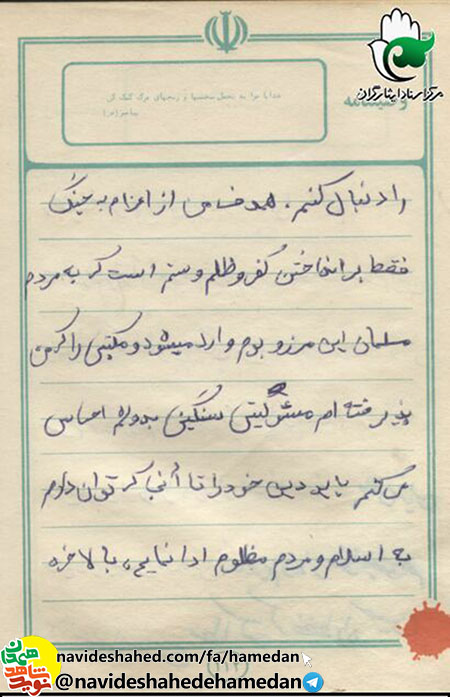 مرکز اسناد ایثارگران
وصیتنامه
خدایا مرا به تحمل سختیها و رنجهای مرگ کمک کن
پیامبر (ص)
را دنبال کنم. هدف من از اعزام به جبهه
فقط بر انداختن کفر و ظلم و ستم است که به مردم
مسلمان این مرز و بوم وارد میشود و مکتبی را که من
پذیرفته ام مسئولیتی سنگین بدوشم احساس
می کنم باید دین خود را تا آنجا که توان دارم
به اسلام و مردم مظلوم ادا نمایم، بالاخره
navideshahed.com/fa/hamedan
@navideshahedehamedan
نوید شاهد
همدان